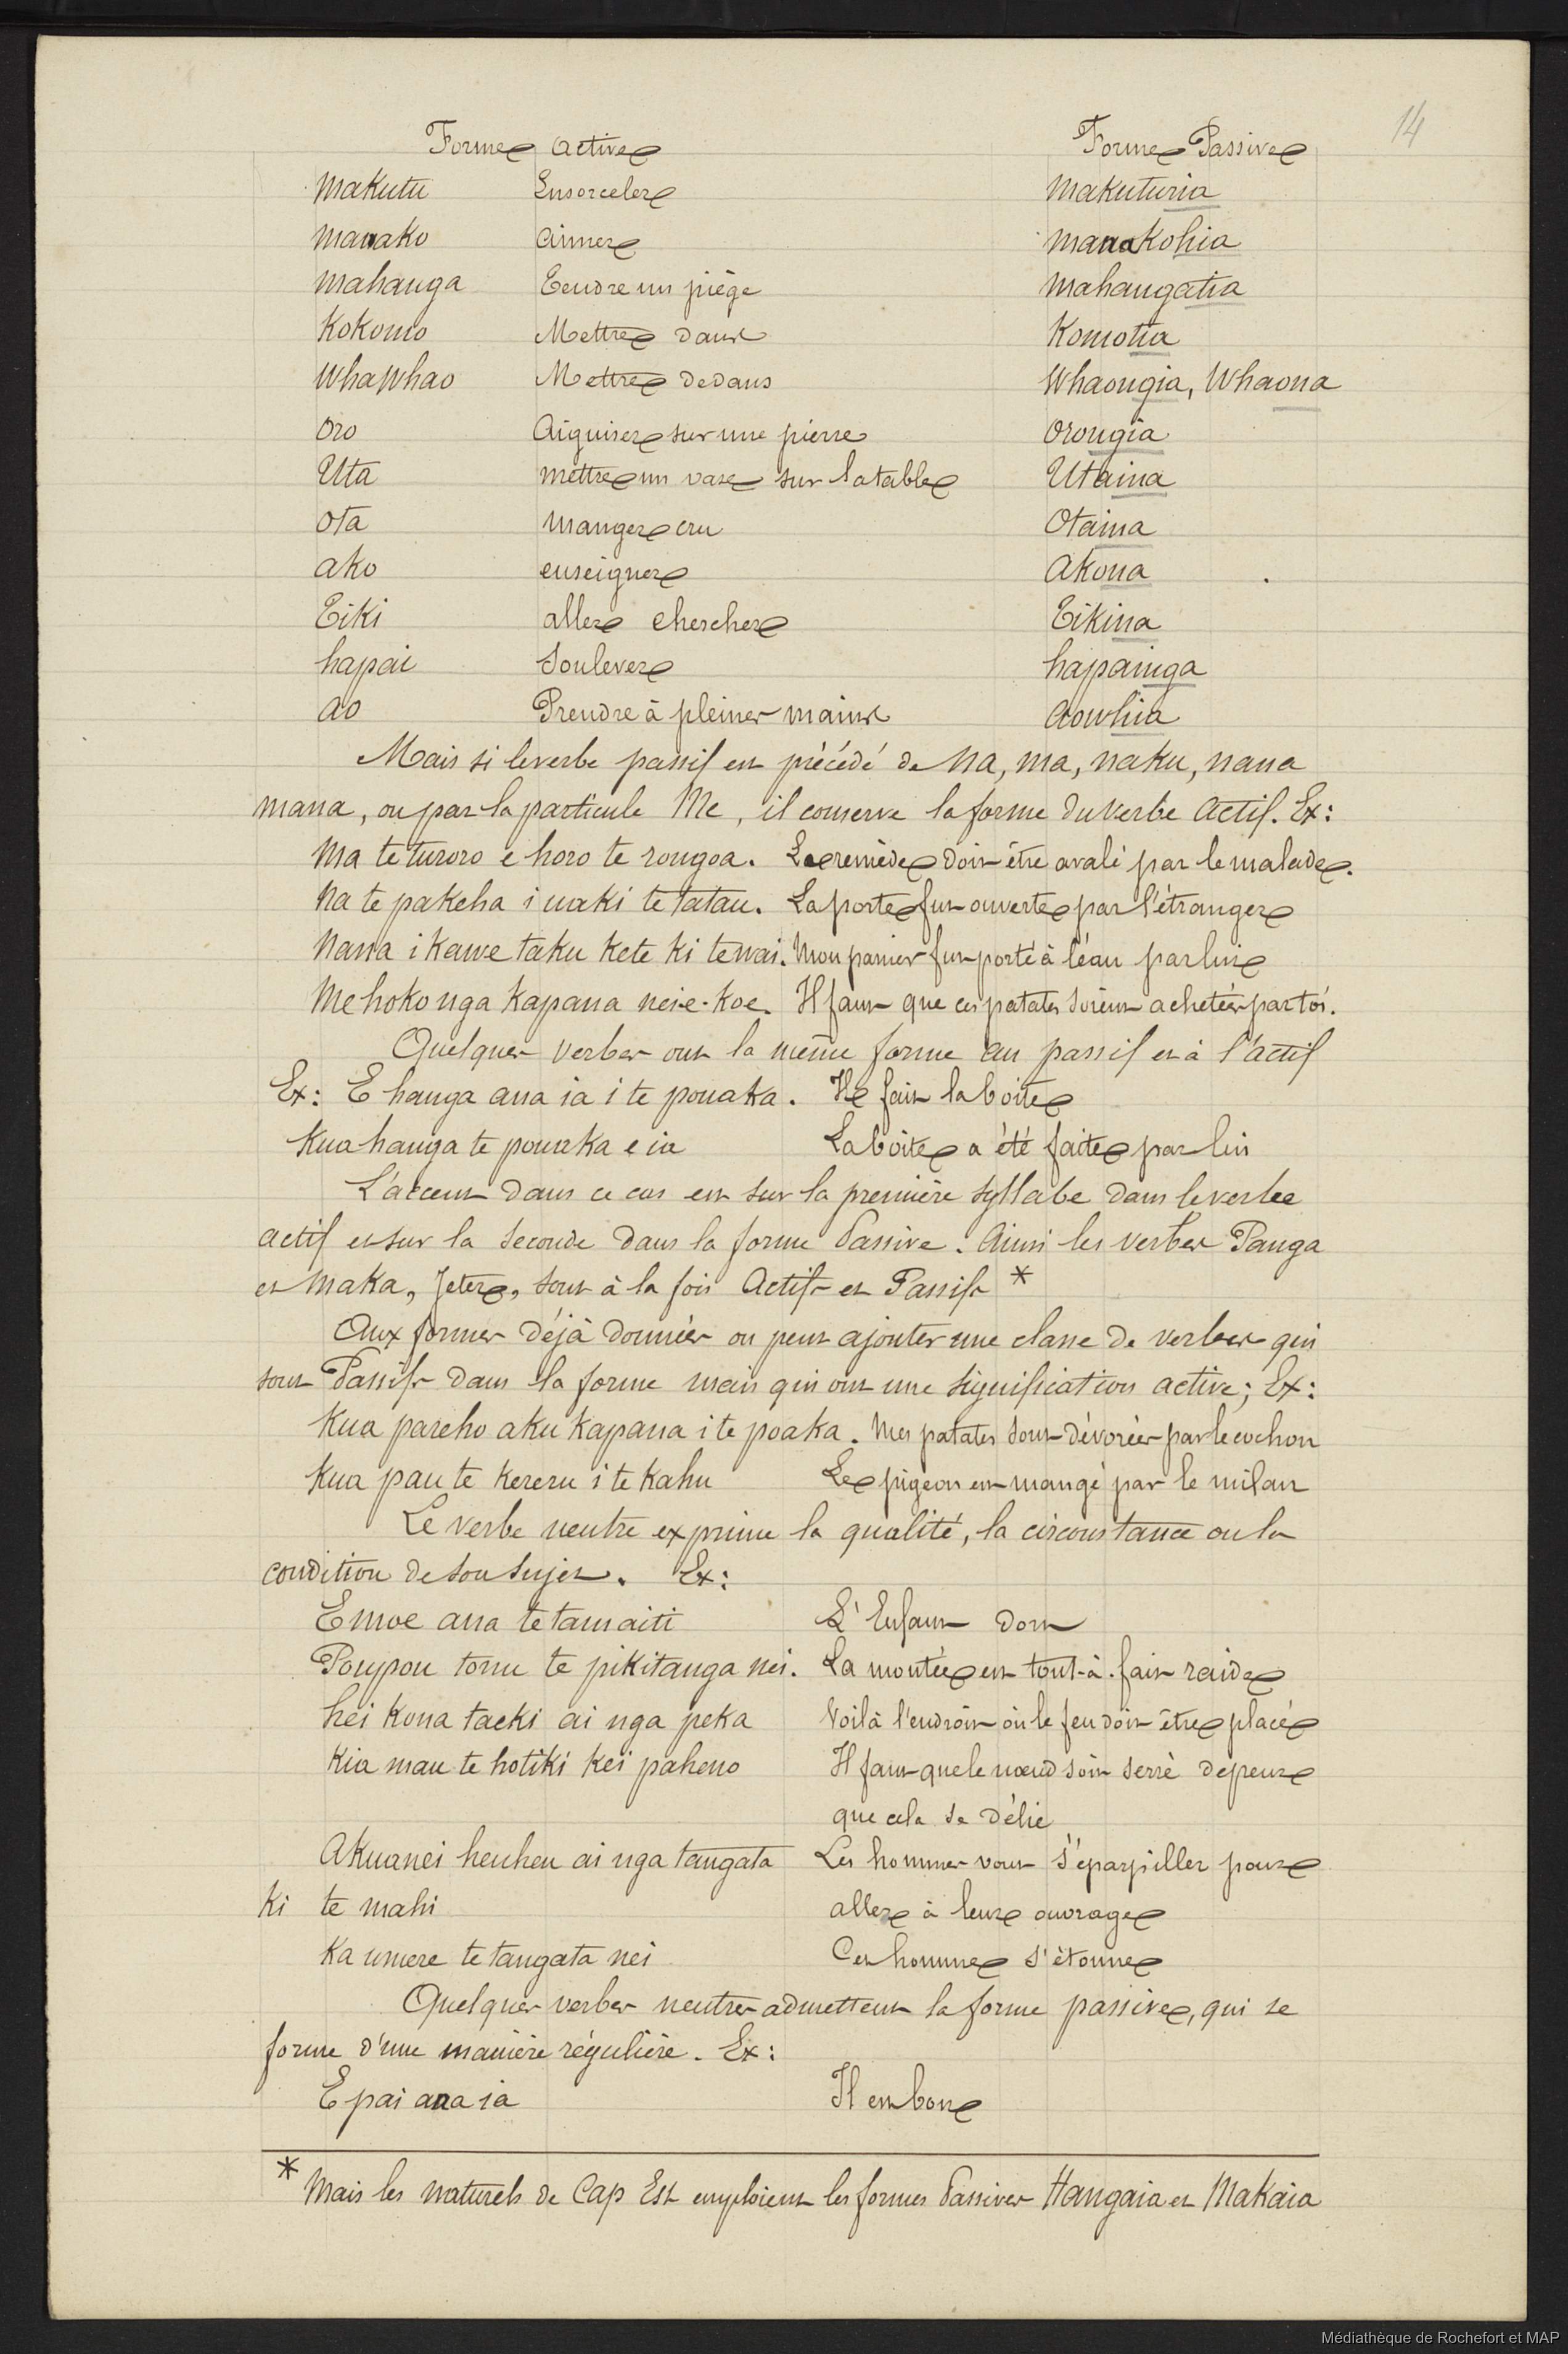 14
Forme Active Forme Passive
Makutu Ensorceler Makuturia
Manako Aimer Manakohia
Mahanga Tendre un piège Mahangatia
Kokomo Mettre dans Komotia
Whawhao Mettre dedans Whaongia, Whaona
Oro Aiguiser sur une pierre Orongia
Uta mettre un vase sur la table Utaina
Ota manger cru Otaina
Ako enseigner Akona
Tiki aller chercher Tikina
hapai Soulever hapainga
Ao Prendre à pleines mains Aowhia
Mais si le verbe passif est précédé de Na, ma, naku, nana
mana, ou par la particule Me, il conserve la forme du verbe Actif. Ex:
Ma te turoro e horo te rongoa. Le remède doit être avalé par le malade.
Na te pakeha i uaki te tatau. La porte fut ouverte par l'étranger
Nana i kawe taku kete ki te wai. Mon panier fut porté à l'eau par lui
Me hoko nga kapana nei e koe. Il faut que ces patates soient achetées par toi.
Quelques verbes ont la même forme au passif et à l'actif
Ex: E hanga ana ia i te pouaka. Il fait la boîte
Kua hanga te pouaka e ia La boîte a été faite par lui
L'accent dans ce cas est sur la première syllabe dans le verbe
actif et sur la seconde dans la forme Passive. Ainsi les verbes Panga
et Maka, Jeter, sont à la fois Actifs et Passifs *
Aux formes déjà données on peut ajouter une classe de verbes qui
sont Passifs dans la forme mais qui ont une signification active; Ex:
Kua pareho aku kapana i te poaka. Mes patates sont dévorées par le cochon
Kua pau te kereru i te kahu Le pigeon est mangé par le milan
Le verbe neutre exprime la qualité, la circonstance ou la
condition de son sujet. Ex:
E moe ana te tamaiti L'Enfant dort
Poupou tonu te pikitanga nei. La montée est tout-à-fait raide
hei kona taeki ai nga peka Voilà l'endroit où le feu doit être placé
Kia mau te hotiki kei paheno Il faut que le nœud soit serré de peur
que cela se délie
Akuanei heuheu ai nga tangata Les hommes vont s'éparpiller pour
ki te mahi aller à leur ouvrage
Ka umere te tangata nei Cet homme s'étonne
Quelques verbes neutres admettent la forme passive, qui se
forme d'une manière régulière. Ex:
E pai ana ia Il est bon
* Mais les naturels de Cap Est emploient les formes Passives Hangaia et Makaia
Médiathèque de Rochefort et MAP